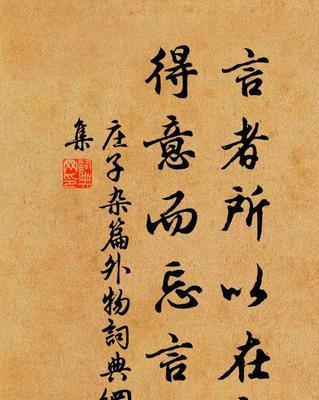 言者所以在
得意而忘言
庄子杂篇外物詞典網
集